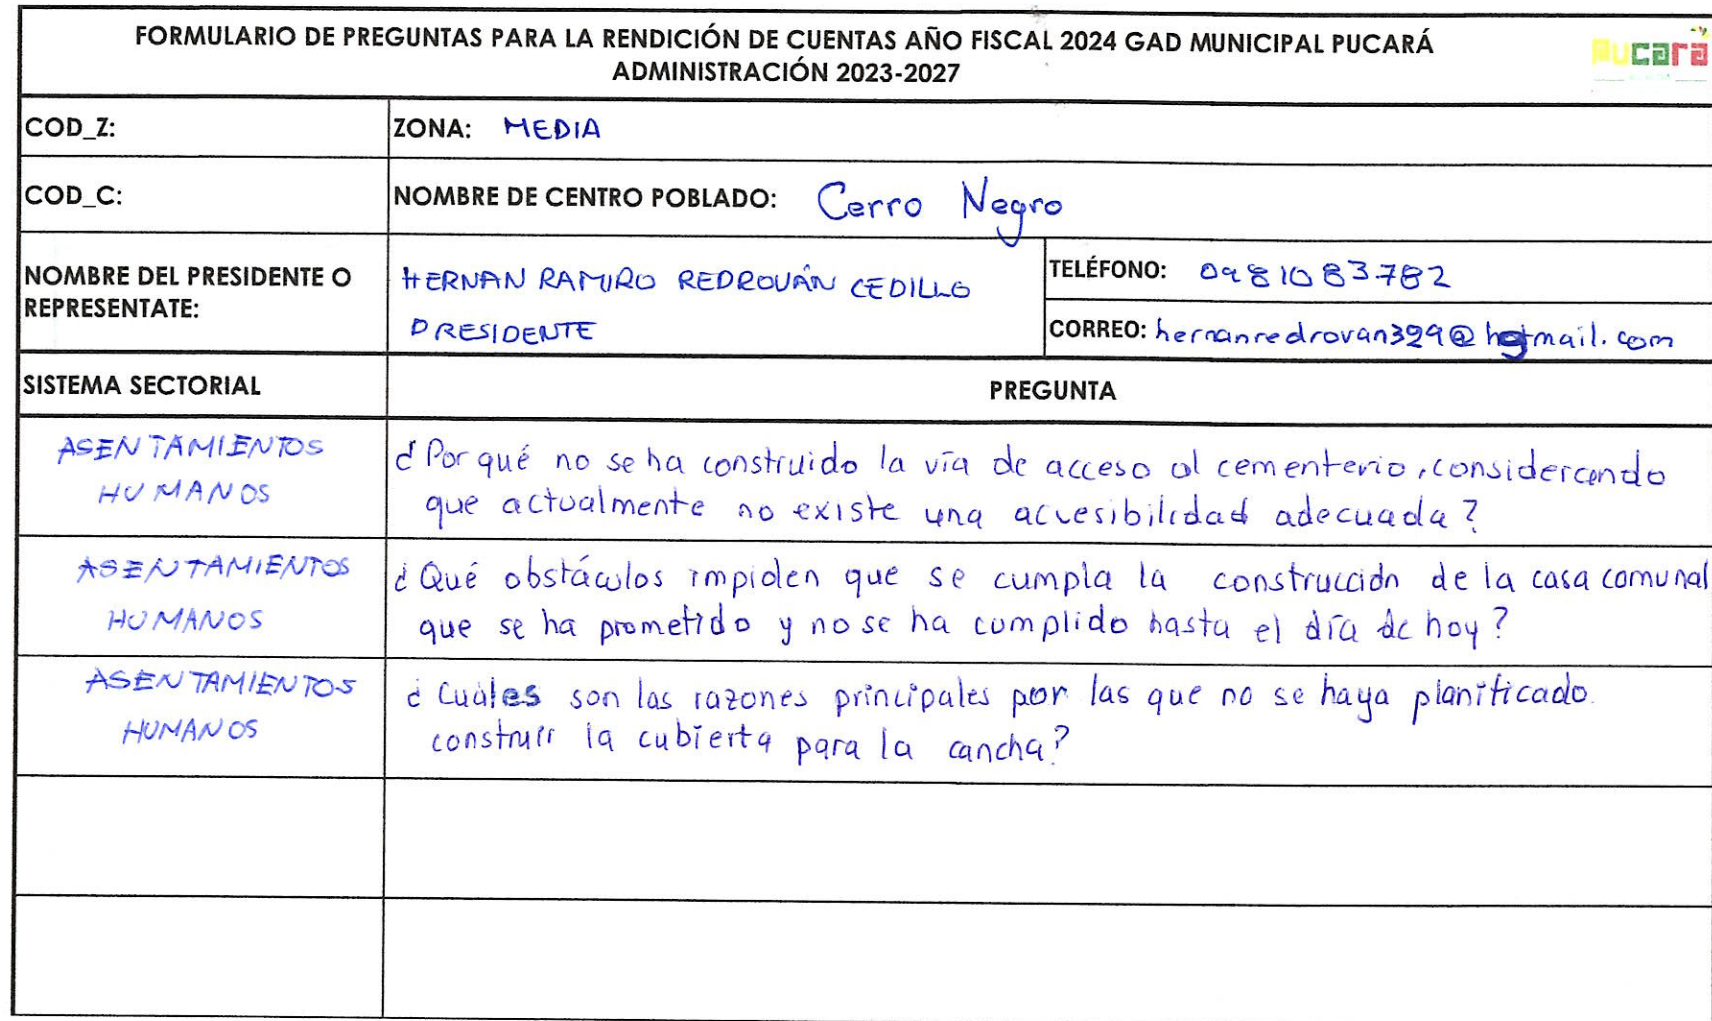 FORMULARIO DE PREGUNTAS PARA LA RENDICIÓN DE CUENTAS AÑO FISCAL 2024 GAD MUNICIPAL PUCARÁ
ADMINISTRACIÓN 2023-2027
Pucará
COD_Z:
ZONA: MEDIA
COD_C:
NOMBRE DE CENTRO POBLADO: Cerro Negro
NOMBRE DEL PRESIDENTE O
REPRESENTATE:
HERNAN RAMIRO REDROVÁN CEDILLO
PRESIDENTE
TELÉFONO: 0981083782
CORREO: hernanredrovan329@hotmail.com
SISTEMA SECTORIAL
PREGUNTA
ASENTAMIENTOS
HUMANOS
¿Por qué no se ha construido la vía de acceso al cementerio, considerando
que actualmente no existe una accesibilidad adecuada?
ASENTAMIENTOS
HUMANOS
¿Qué obstáculos impiden que se cumpla la construcción de la casa comunal
que se ha prometido y no se ha cumplido hasta el día de hoy?
ASENTAMIENTOS
HUMANOS
¿Cuáles son las razones principales por las que no se haya planificado
construir la cubierta para la cancha?